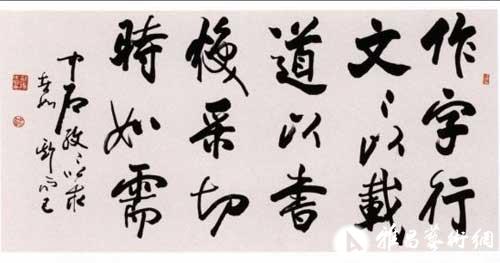 作字行
文〻以載
道以書
煥采切
時如需
中石孜〻以求
雅昌藝術網